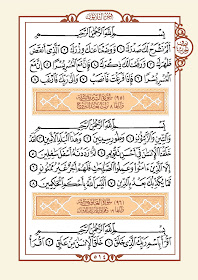 بِسْمِ اللَّهِ الرَّحْمَٰنِ الرَّحِيمِ
أَلَمْ نَشْرَحْ لَكَ صَدْرَكَ ۝١ وَوَضَعْنَا عَنكَ وِزْرَكَ ۝٢ الَّذِي أَنقَضَ
ظَهْرَكَ ۝٣ وَرَفَعْنَا لَكَ ذِكْرَكَ ۝٤ فَإِنَّ مَعَ الْعُسْرِ يُسْرًا ۝٥ إِنَّ مَعَ
الْعُسْرِ يُسْرًا ۝٦ فَإِذَا فَرَغْتَ فَانصَبْ ۝٧ وَإِلَىٰ رَبِّكَ فَارْغَب ۝٨
(٩٥) سورة التين
بِسْمِ اللَّهِ الرَّحْمَٰنِ الرَّحِيمِ
وَالتِّينِ وَالزَّيْتُونِ ۝١ وَطُورِ سِينِينَ ۝٢ وَهَٰذَا الْبَلَدِ الْأَمِينِ ۝٣ لَقَدْ
خَلَقْنَا الْإِنسَانَ فِي أَحْسَنِ تَقْوِيمٍ ۝٤ ثُمَّ رَدَدْنَاهُ أَسْفَلَ سَافِلِينَ ۝٥ إِلَّا
الَّذِينَ آمَنُوا وَعَمِلُوا الصَّالِحَاتِ فَلَهُمْ أَجْرٌ غَيْرُ مَمْنُونٍ ۝٦
فَمَا يُكَذِّبُكَ بَعْدُ بِالدِّينِ ۝٧ أَلَيْسَ اللَّهُ بِأَحْكَمِ الْحَاكِمِينَ ۝٨
(٩٦) سورة العلق
بِسْمِ اللَّهِ الرَّحْمَٰنِ الرَّحِيمِ
اقْرَأْ بِاسْمِ رَبِّكَ الَّذِي خَلَقَ ۝١ خَلَقَ الْإِنسَانَ مِنْ عَلَقٍ ۝٢ اقْرَأْ
٥١٤